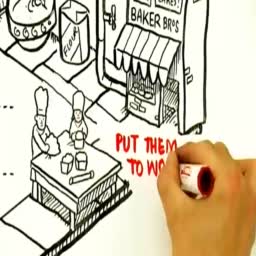 CAKES!
BAKER BROS
FLOUR
PUT THEM
TO WO